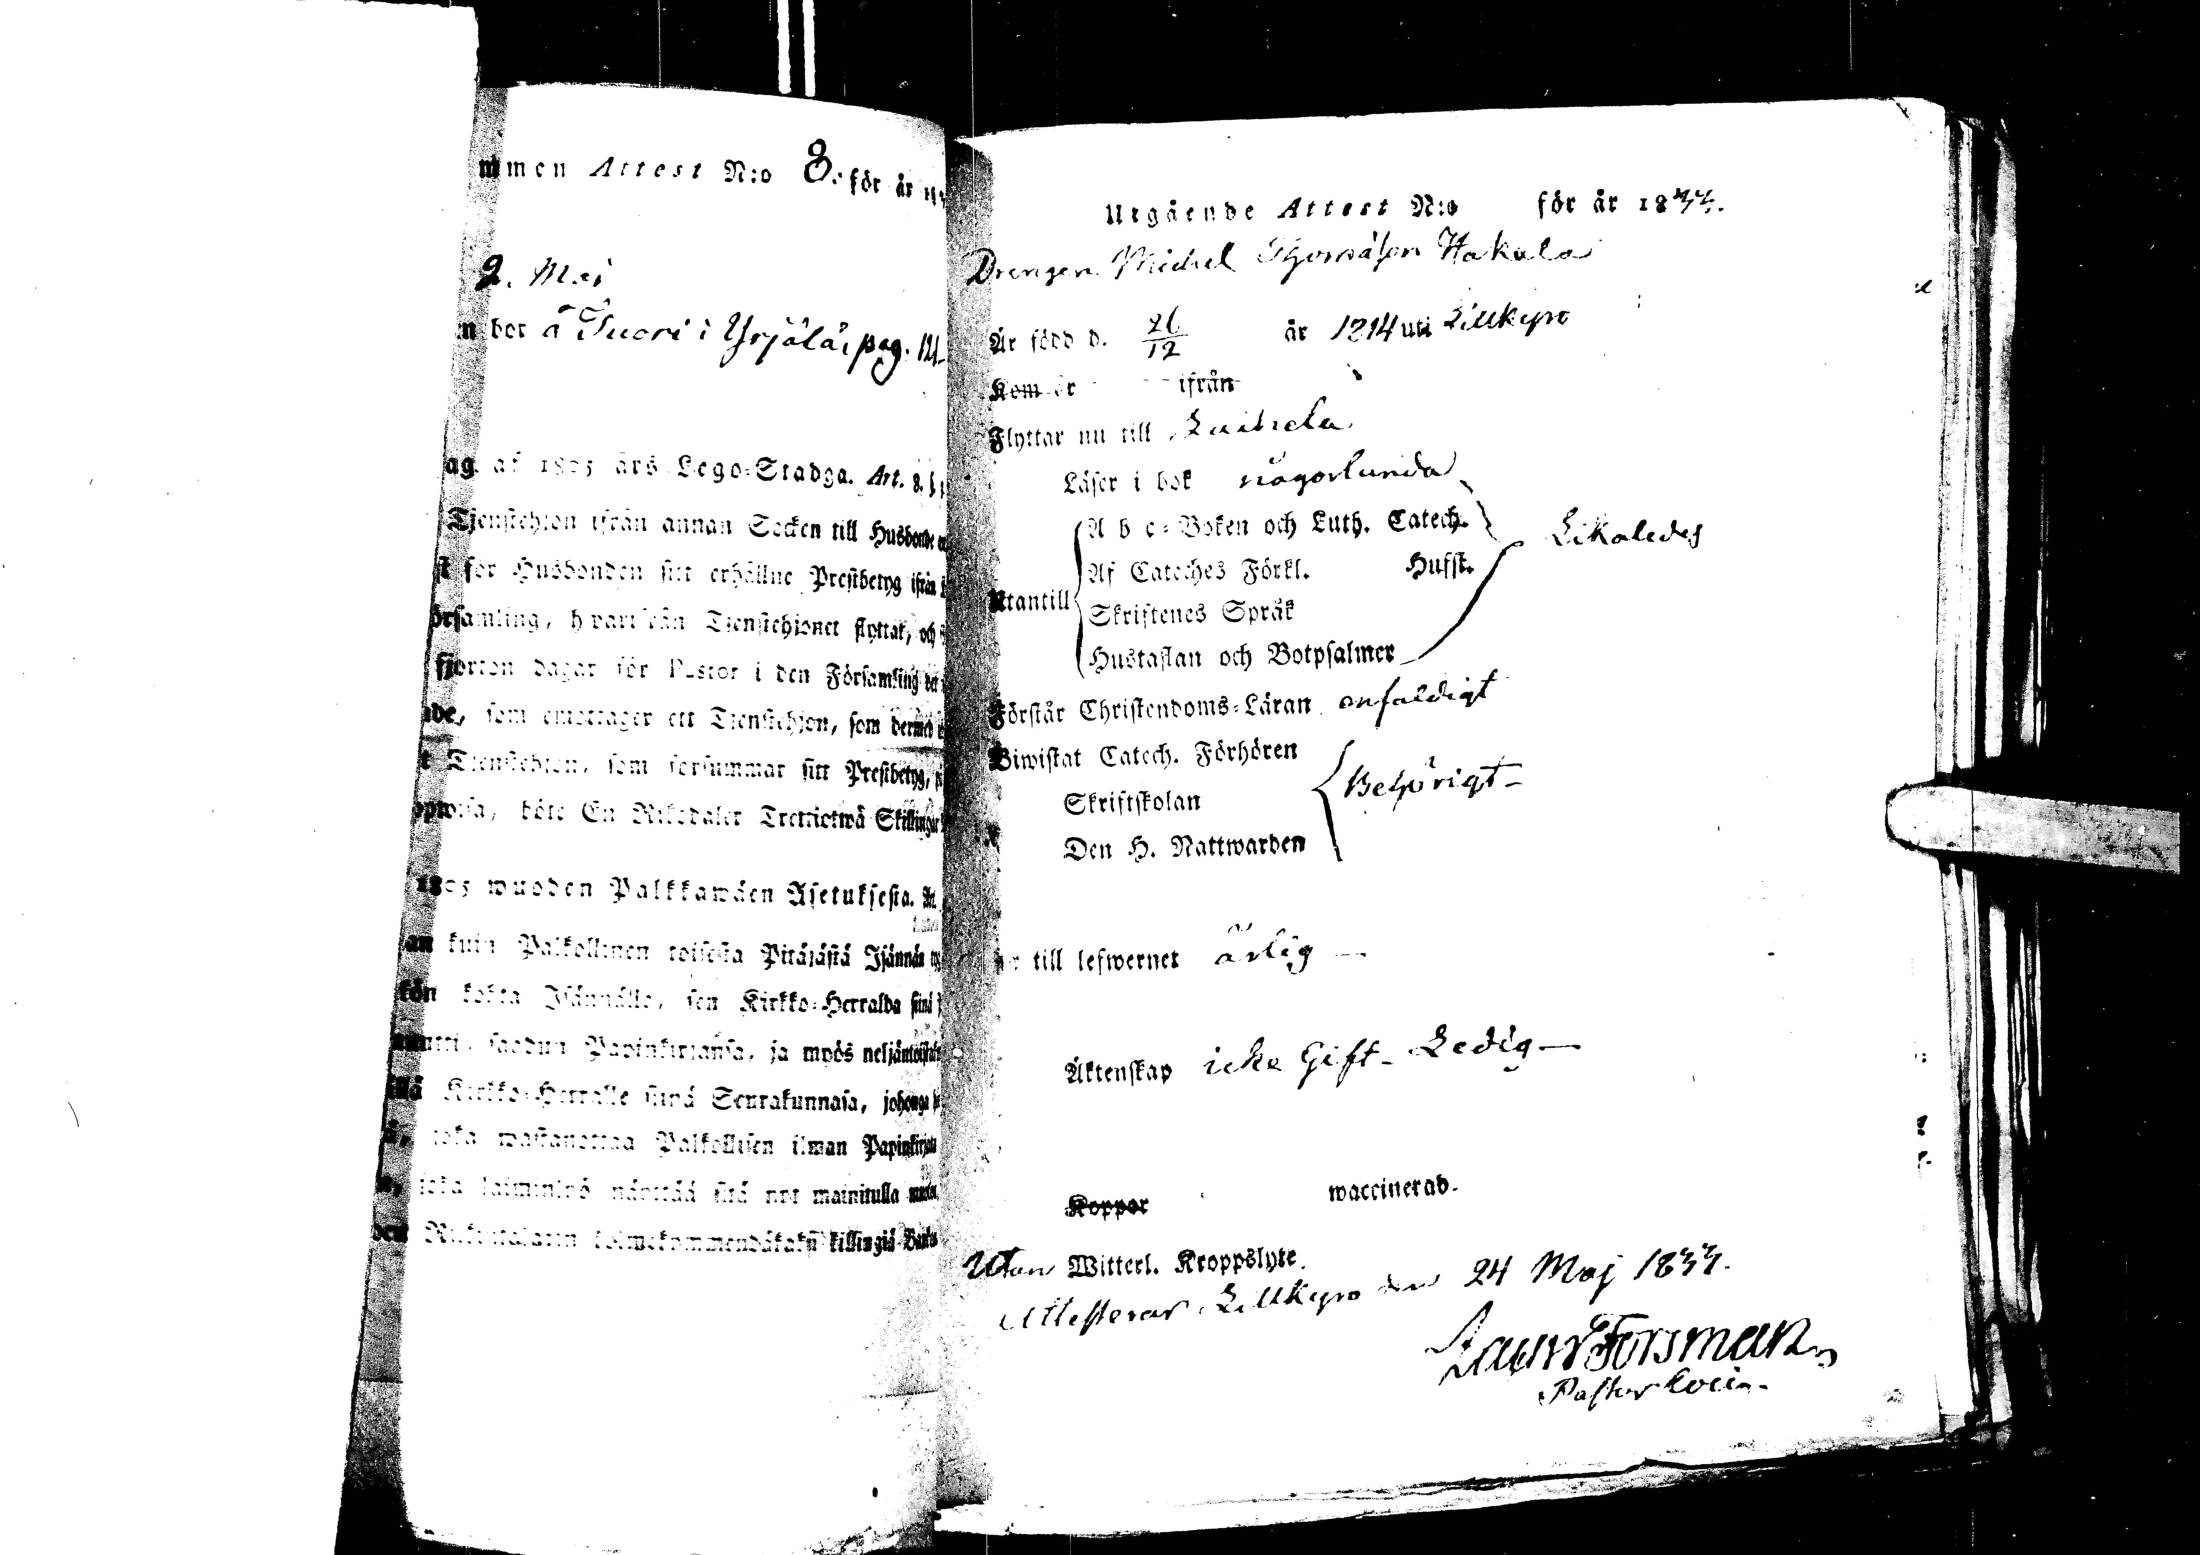 mmen Attest N:o 8. för år
2. Maj
bor å Tuori i Yrjälä, pag. 121
af 1805 års Lego-Stadga. Art. 8. §
Tjenstehjon ifrån annan Socken till Husbonde
för Husbonden sitt erhållne Prestbetyg ifrån
örsamling, hvarifrån Tjenstehjonet flyttat, och
fjorton dagar för Pastor i den Församling der
som emottager ett Tjenstehjon, som dermed
Tjenstehjon, som försummar sitt Prestbetyg,
uppwisa, böte En Riksdaler Trettiotwå Skillingar
1805 wuoden Palkkawäen Asetuksesta. Art.
kuin Palkollinen toisesta Pitäjästä Isännän
kohta Isännälle, sen Kirkko-Herralda siinä
saadun Papinkirjansa, ja myös neljäntoista
Kirkko-Herralle siinä Seurakunnasa, johonga
joka wastanottaa Palkollisen ilman Papinkirjata
joka laiminlyö näyttää sitä nyt mainitulla
Riksitalarin kolmekymmendäkaksi killingiä Banko
Utgående Attest N:o för år 1844.
Drengen Michel Thomasson Hakala
Är född d. 26/12 år 1814 uti Lillkyro
Kom år ifrån
Flyttar nu till Laihela
Läser i bok någorlunda
A b c-Boken och Luth. Catech.
Likaledes
Af Cateches Förkl. Hufst.
Utantill
Skriftenes Språk
Hustaflan och Botpsalmer
Förstår Christendoms-Läran enfaldigt
Biwistat Catech. Förhören
Behörigt
Skriftskolan
Den H. Nattwarden
till lefwernet ärlig
Äktenskap icke Gift - Ledig
Koppor waccinerad.
Utan Witterl. Kroppslyte.
Attesterar Lillkyro den 24 Maj 1844.
Forsman
Pastor Loci